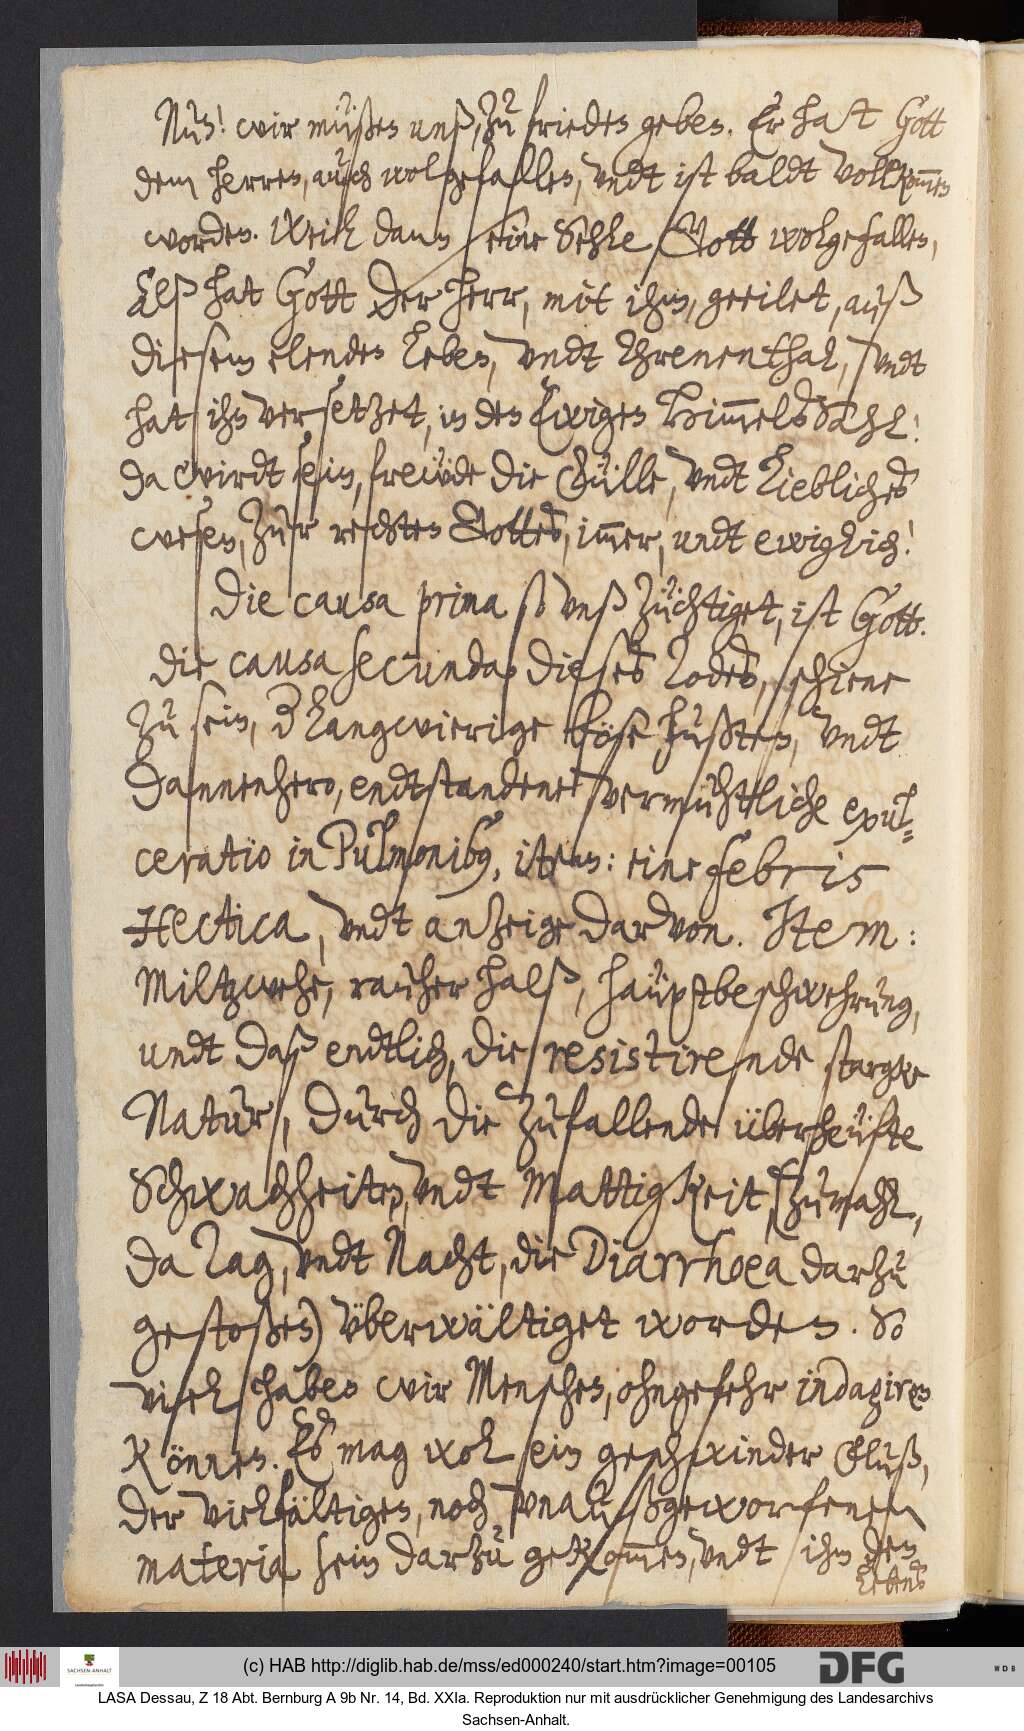 Nun! wir müßen unß, zu frieden geben. Er hat Gott
dem herren, auch wolgefallen, undt ist baldt vollkommen
worden. Weil dann seine Sehle Gott wolgefallen,
Alß hat Gott der herr, mit ihm, geeilet, auß
diesem elenden leben, undt threnenthal, undt
hat ihn versetzet, in den Ewigen Himmels Sahl!
da wirdt sein, freude die fülle, undt liebliches
wesen, zur rechten Gottes, immer, undt ewiglich!
Die causa prima so unß züchtiget, ist Gott.
Die causa secunda dieses Todes, schiene
zu sein, der langwierige böse hußten, undt
dannenhero, endtstandene vermuhtliche exul⸗
ceratio in Pulmonibus, item: eine febris
Hectica, undt anzeige darvon. Item:
Miltzwehe, rauher halß, häuptbeschwehrung,
undt daß endtlich, die resistirende starcke
Natur, durch die zufallende überheüfte
Schwachheiten, undt Mattigkeit, (zumahl,
da Tag, undt Nacht, die Diarrhoea darzu
gestoßen) überwältiget worden. So
viel haben wir Menschen, ohngefehr indagiren
können. Es mag wol ein geschwinder fluß,
der vielfältigen, noch unaußgeworfenen
materia sein darzu gekommen, undt ihm den
Lebens
(c) HAB http://diglib.hab.de/mss/ed000240/start.htm?image=00105
SACHSEN-ANHALT
DFG
WDB
LASA Dessau, Z 18 Abt. Bernburg A 9b Nr. 14, Bd. XXIa. Reproduktion nur mit ausdrücklicher Genehmigung des Landesarchivs
Sachsen-Anhalt.